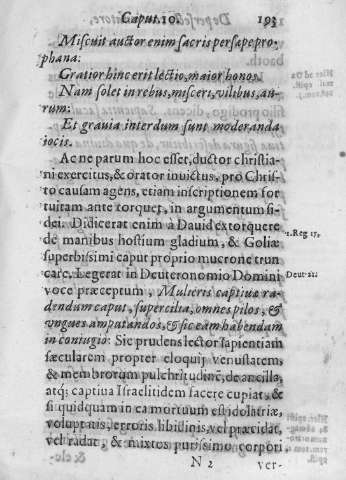 Caput. 10. 193
Miscuit auctor enim sacris persæpe pro-
phana:
Gratior hinc erit lectio, maior honos.
Nam solet in rebus, misceri, vilibus, au-
rum:
Et grauia interdum sunt moderanda
iocis.
Ac ne parum hoc esset, ductor christia-
ni exercitus, & orator inuictus, pro Chris-
to causam agens, etiam inscriptionem for
tuitam ante torquet, in argumentum fi-
dei. Didicerat enim à Dauid extorquere
de manibus hostium gladium, & Goliæ
superbissimi caput proprio mucrone trun
care. Legerat in Deuteronomio Domini
voce præceptum, Mulieris captiuæ ra-
dendum caput, supercilia, omnes pilos, &
vngues amputandos, & sic eam habendam
in coniugio: Sic prudens lector sapientiam
sæcularem propter eloquij venustatem,
& membrorum pulchritudinẽ, de ancilla,
atq; captiua Israelitidem facere cupiat, &
si quidquam in ea mortuum est, idolatriæ,
voluptatis, erroris, libidinis, vel præcidat,
vel radat, & mixtos purissimo corpori
N 2 ver-
1. Reg 17.
Deut. 21.